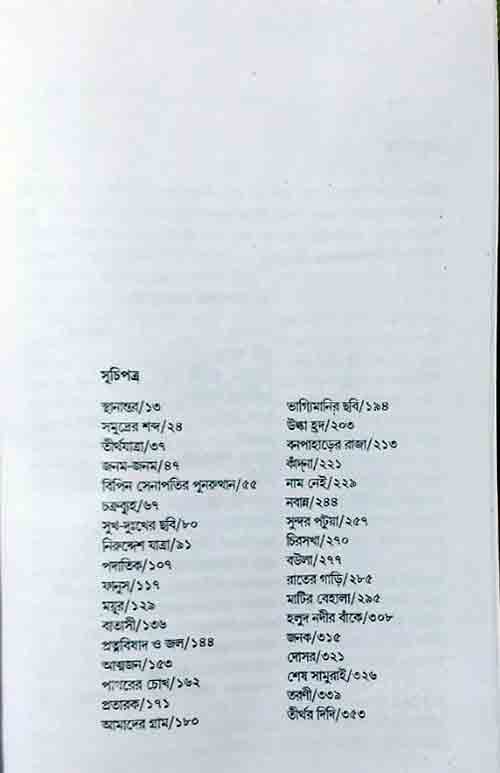 সূচিপত্র
স্থানান্তর/১৩
সমুদ্রের শব্দ/২৪
তীর্থযাত্রা/৩৭
জনম-জনম/৪৭
বিপিন সেনাপতির পুনরুত্থান/৫৫
চক্রব্যূহ/৬৭
সুখ-দুঃখের ছবি/৮০
নিরুদ্দেশ যাত্রা/৯১
পদাতিক/১০৭
ফানুস/১১৭
ময়ূর/১২৯
বাতাসী/১৩৬
প্রত্নবিষাদ ও জল/১৪৪
আত্মজন/১৫৩
পাথরের চোখ/১৬২
প্রতারক/১৭১
আমাদের গ্রাম/১৮০
ভাগ্যিমানির ছবি/১৯৪
উল্কা হ্রদ/২০৩
বনপাহাড়ের রাজা/২১৩
কাঁদনা/২২১
নাম নেই/২২৯
নবান্ন/২৪৪
সুন্দর পটুয়া/২৫৭
চিরসখা/২৭০
বউলা/২৭৭
রাতের গাড়ি/২৮৫
মাটির বেহালা/২৯৫
হলুদ নদীর বাঁকে/৩০৮
জনক/৩১৫
দোসর/৩২১
শেষ সামুরাই/৩২৬
তরণী/৩৩৯
তীর্থর দিদি/৩৫৩